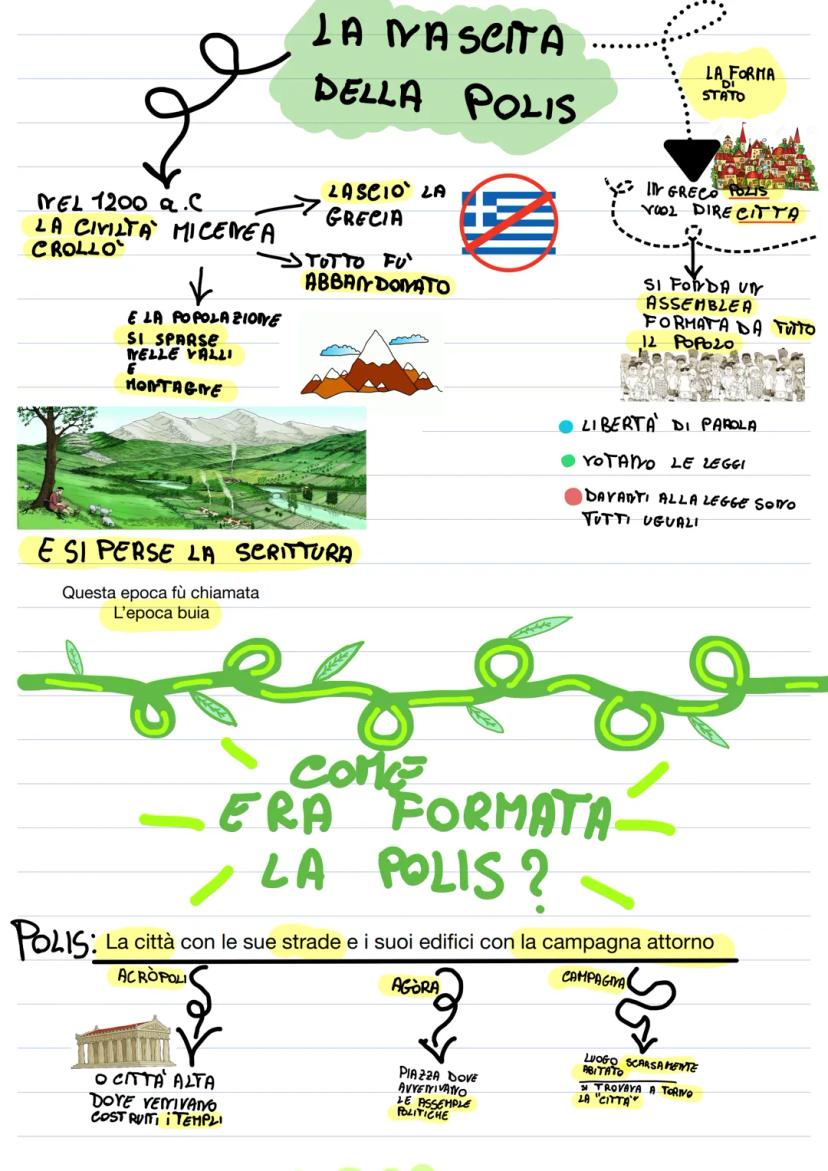 LA NASCITA
DELLA POLIS
LA FORMA
DI
STATO
NEL 1200 a.C
LA CIVILTA' MICENEA
CROLLO'
LASCIO' LA
GRECIA
TUTTO FU'
ABBANDONATO
E LA POPOLAZIONE
SI SPARSE
NELLE VALLI
E
MONTAGNE
E SI PERSE LA SCRITTURA
Questa epoca fù chiamata
L'epoca buia
IN GRECO POLIS
VUOL DIRE CITTA
SI FONDA UN
ASSEMBLEA
FORMATA DA TUTTO
IL POPOLO
LIBERTA' DI PAROLA
VOTANO LE LEGGI
DAVANTI ALLA LEGGE SONO
TUTTI UGUALI
COME
ERA FORMATA
LA POLIS?
POLIS: La città con le sue strade e i suoi edifici con la campagna attorno
ACRÒPOLI
O CITTA' ALTA
DOVE VENIVANO
COSTRUITI i TEMPLI
AGÒRA
PIAZZA DOVE
AVVENIVANO
LE ASSEMBLE
POLITICHE
CAMPAGNA
LUOGO SCARSAMENTE
ABITATO
SI TROVAVA A TORNO
LA "CITTA'"